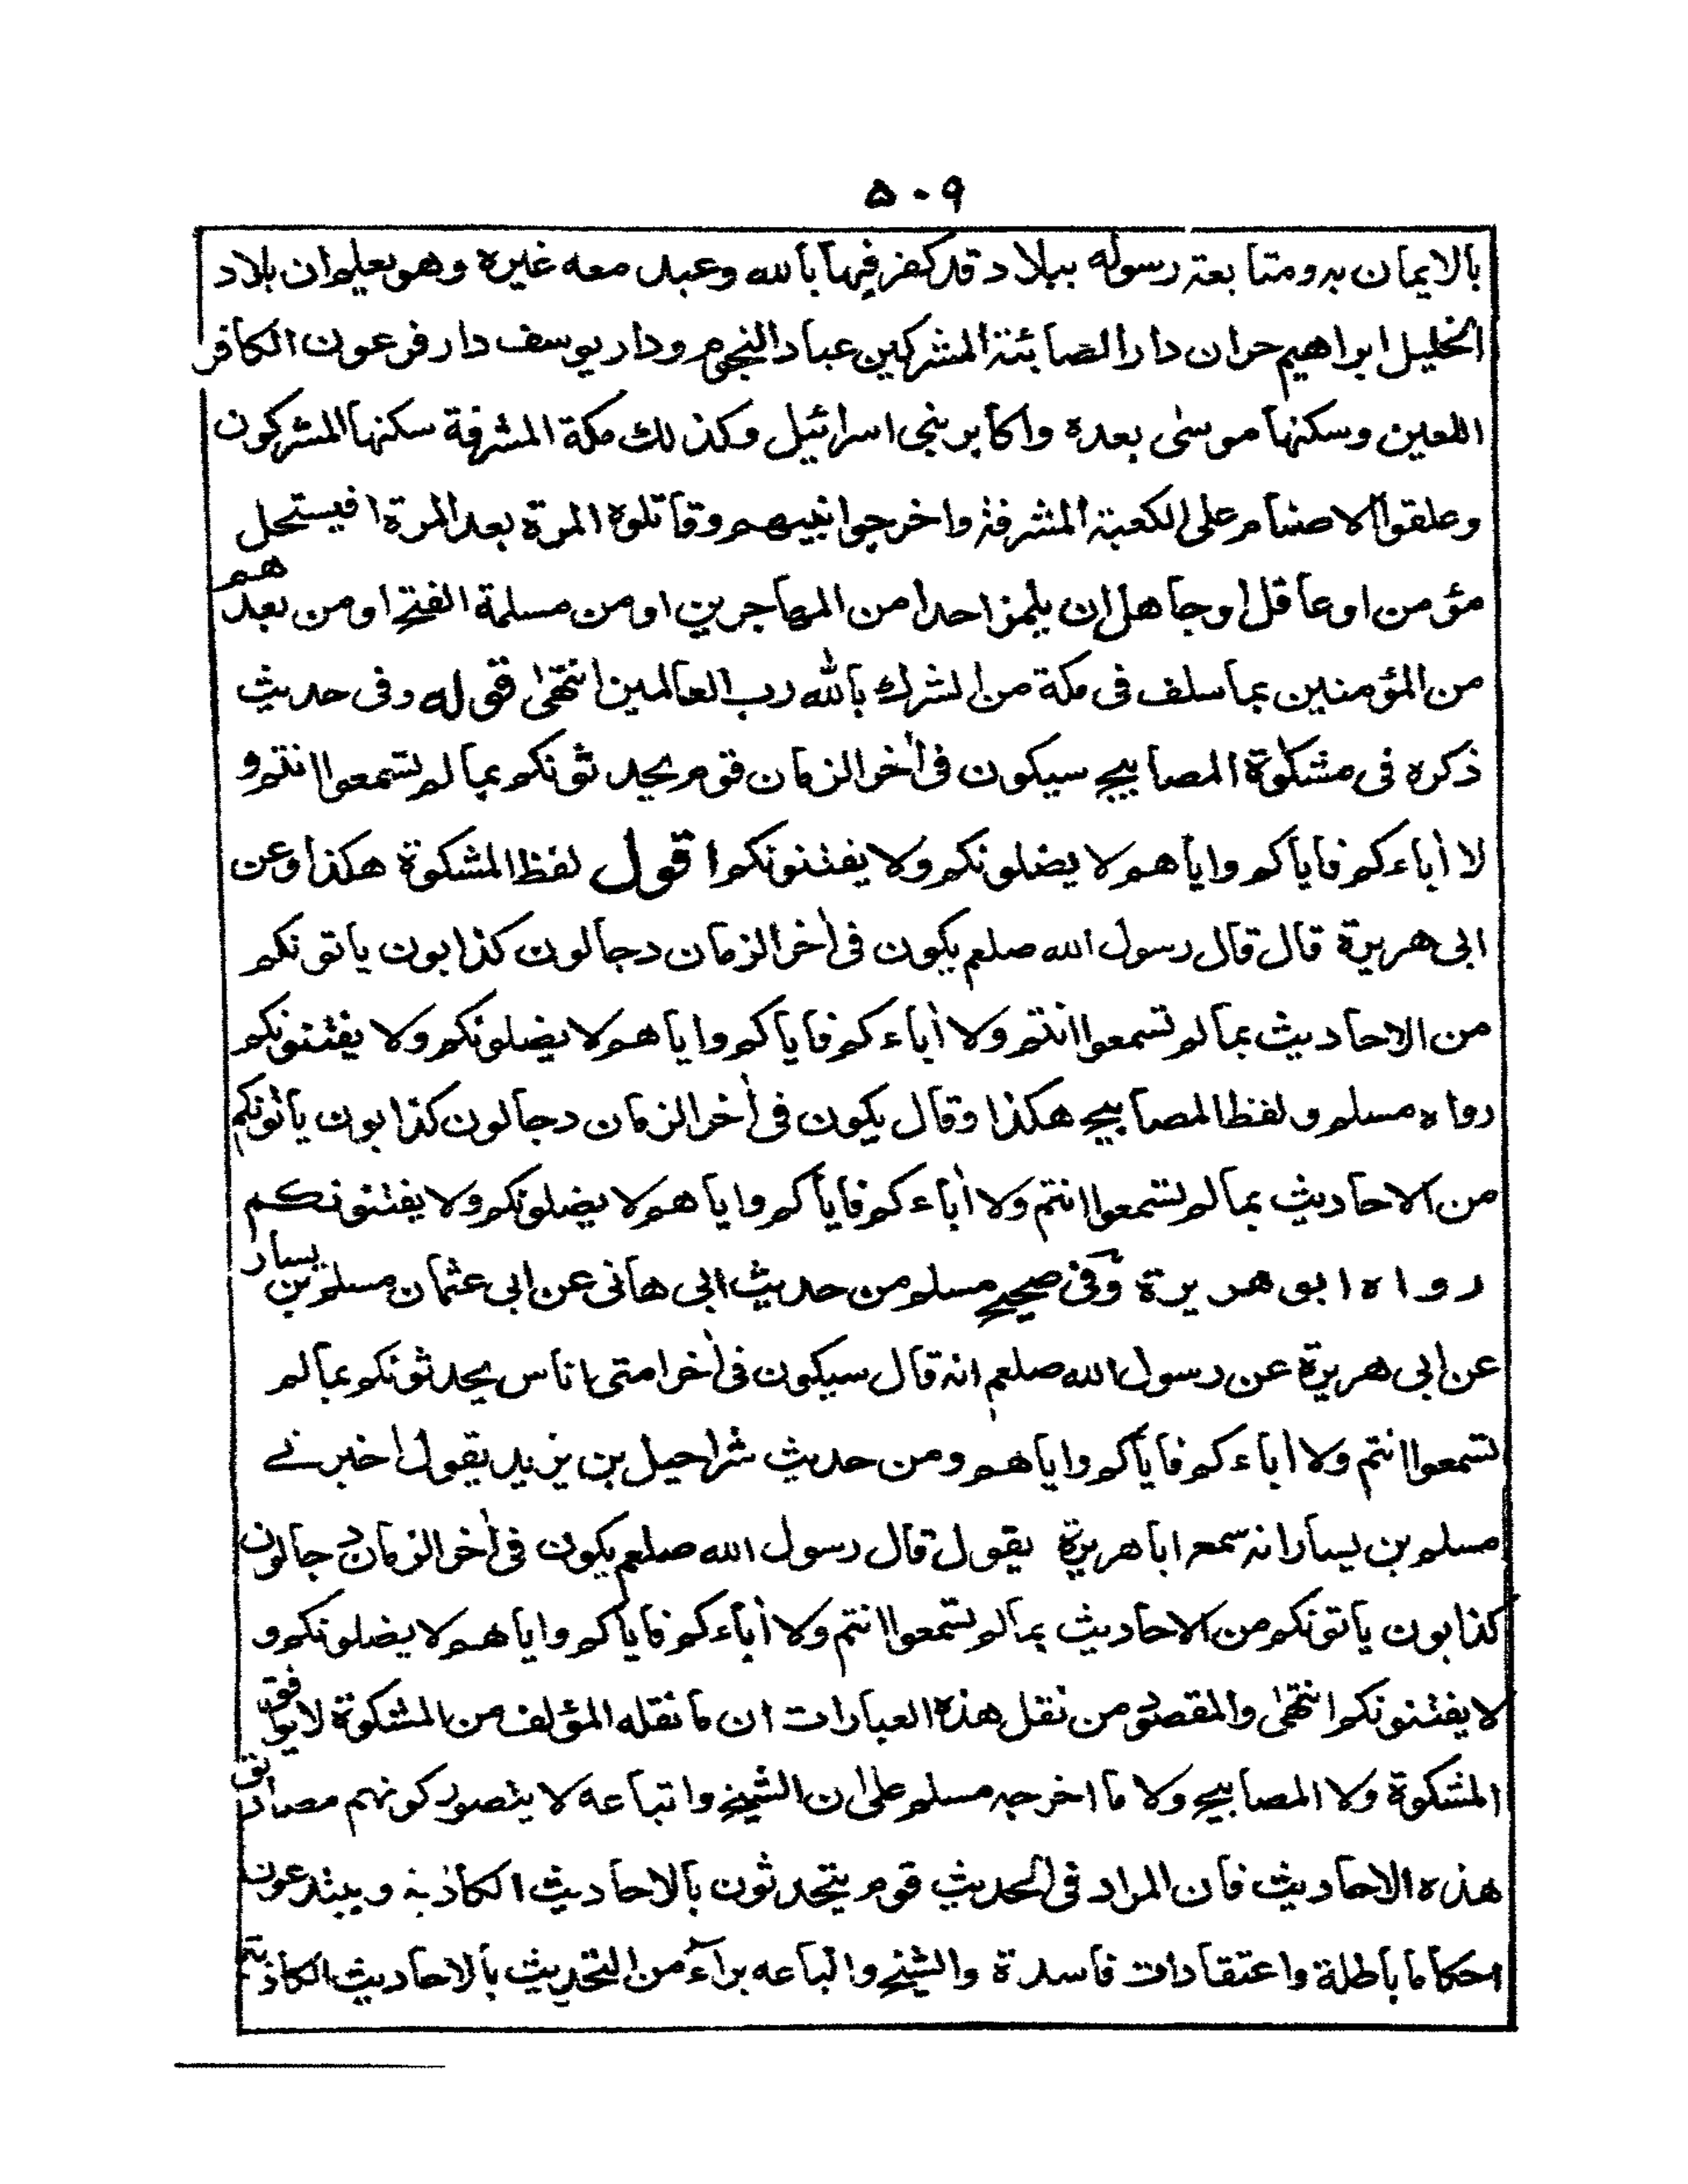 ۵۰۹
بالایمان به ومتابعة رسوله ببلاد قد کفر فیها بالله وعبد معه غیره وهو یعلم ان بلاد
الخلیل ابراهیم حران دار الصابئة المشرکین عباد النجوم ودار یوسف دار فرعون الکافر
اللعین وسکنها موسٰی بعده واکابر بنی اسرائیل وکذلك مکة المشرفة سکنها المشرکون
وعلقوا الاصنام علی الکعبة المشرفة واخرجوا نبیهم وقاتلوه المرة بعد المرة افیستحل
مؤمن او عاقل او جاهل ان یلمز احدا من المهاجرین او من مسلمة الفتح او من بعدهم
من المؤمنین بما سلف فی مکة من الشرك بالله رب العالمین انتهٰی قوله وفی حدیث
ذکره فی مشکٰوة المصابیح سیکون فی اٰخر الزمان قوم یحدثونکم بما لم تسمعوا انتم و
لا اٰباءکم فایاکم وایاهم لا یضلونکم ولا یفتنونکم اقول لفظ المشکوة هکذا وعن
ابی هریرة قال قال رسول الله صلعم یکون فی اٰخر الزمان دجالون کذابون یاتونکم
من الاحادیث بما لم تسمعوا انتم ولا اٰباءکم فایاکم وایاهم لا یضلونکم ولا یفتنونکم
رواه مسلم ولفظ المصابیح هکذا وقال یکون فی اٰخر الزمان دجالون کذابون یاتونکم
من الاحادیث بما لم تسمعوا انتم ولا اٰباءکم فایاکم وایاهم لا یضلونکم ولا یفتنونکم
رواه ابو هریرة وفی صحیح مسلم من حدیث ابی هانی عن ابی عثمان مسلم بن یسار
عن ابی هریرة عن رسول الله صلعم انه قال سیکون فی اٰخر امتی اناس یحدثونکم بما لم
تسمعوا انتم ولا اٰباءکم فایاکم وایاهم ومن حدیث شراحیل بن یزید یقول اخبرنے
مسلم بن یسار انه سمع ابا هریرة یقول قال رسول الله صلعم یکون فی اٰخر الزمان دجالون
کذابون یاتونکم من الاحادیث بما لم تسمعوا انتم ولا اٰباءکم فایاکم وایاهم لا یضلونکم و
لا یفتنونکم انتهٰی والمقصود من نقل هذه العبارات ان ما نقله المؤلف من المشکوة لا یوافق
المشکوة ولا المصابیح ولا ما اخرجه مسلم علی ان الشیخ واتباعه لا یتصور کونهم مصادیق
هذه الاحادیث فان المراد فی الحدیث قوم یتحدثون بالاحادیث الکاذبة ویبتدعون
احکاما باطلة واعتقادات فاسدة والشیخ واتباعه براء من التحدیث بالاحادیث الکاذبة